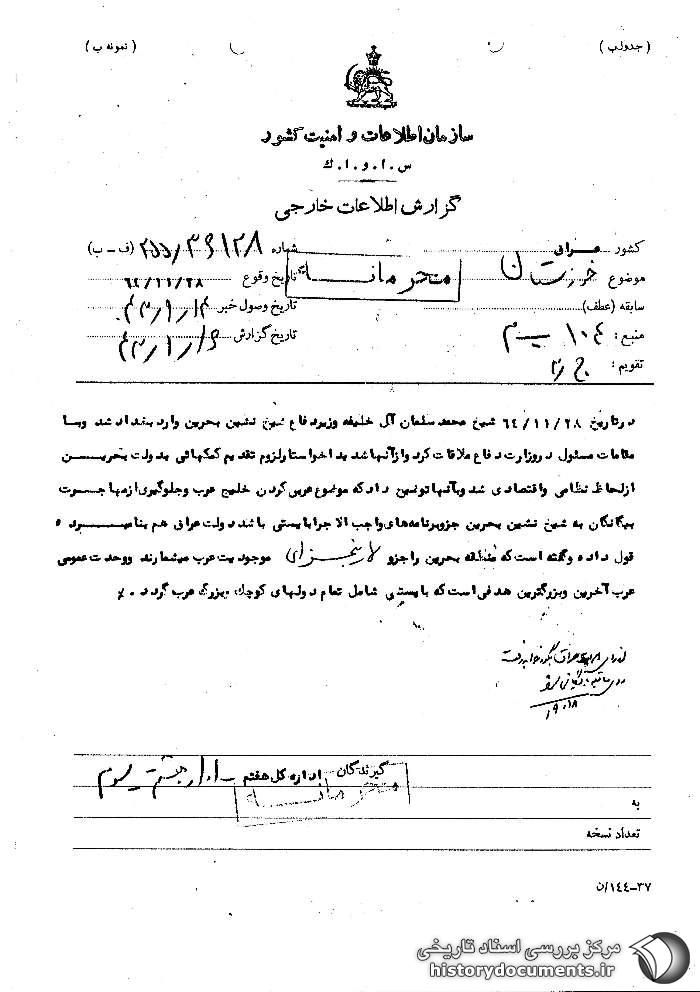 ( جدول ب )
( نمونه ب )
سازمان اطلاعات و امنیت کشور
س . ا . و . ا . ك
گزارش اطلاعات خارجی
کشور عراق شماره ۳۶۱۲۸ (ف - ب)
موضوع خوزستان تاریخ وقوع ۶۴/۱۱/۲۸
محرمانه
سابقه (عطف) تاریخ وصول خبر
منبع : تاریخ گزارش
تقویم :
درتاریخ ۶۴/۱۱/۲۸ شیخ محمد سلمان آل خلیفه وزیر دفاع شیخ نشین بحرین وارد بغداد شد وبا
مقامات مسئول در وزارت دفاع ملاقات کرد و ازآنها شدیداخواستار لزوم تقدیم کمکهائی بدولت بحریـــن
ازلحاظ نظامی واقتصادی شد وبآنها توضیح داد که موضوع عربی کردن خلیج عرب وجلوگیری ازمهاجــرت
بیگانگان به شیخ نشین بحرین جزوبرنامه‌های واجب الاجرا بایستی باشد دولت عراق هم بنامبــرده
قول داده وگفته است که منطقه بحرین راجزو لایتجزای موجودیت عرب میشمارند ووحدت عمومی
عرب آخرین وبزرگترین هدفی است که بایستی شامل تمام دولتهای کوچک وبزرگ عرب گردد .
گیرندگان اداره کل هفتم
محرمانه
به
تعداد نسخه
۳۷-۱۴۴/ن
مرکز بررسی اسناد تاریخی
historydocuments.ir